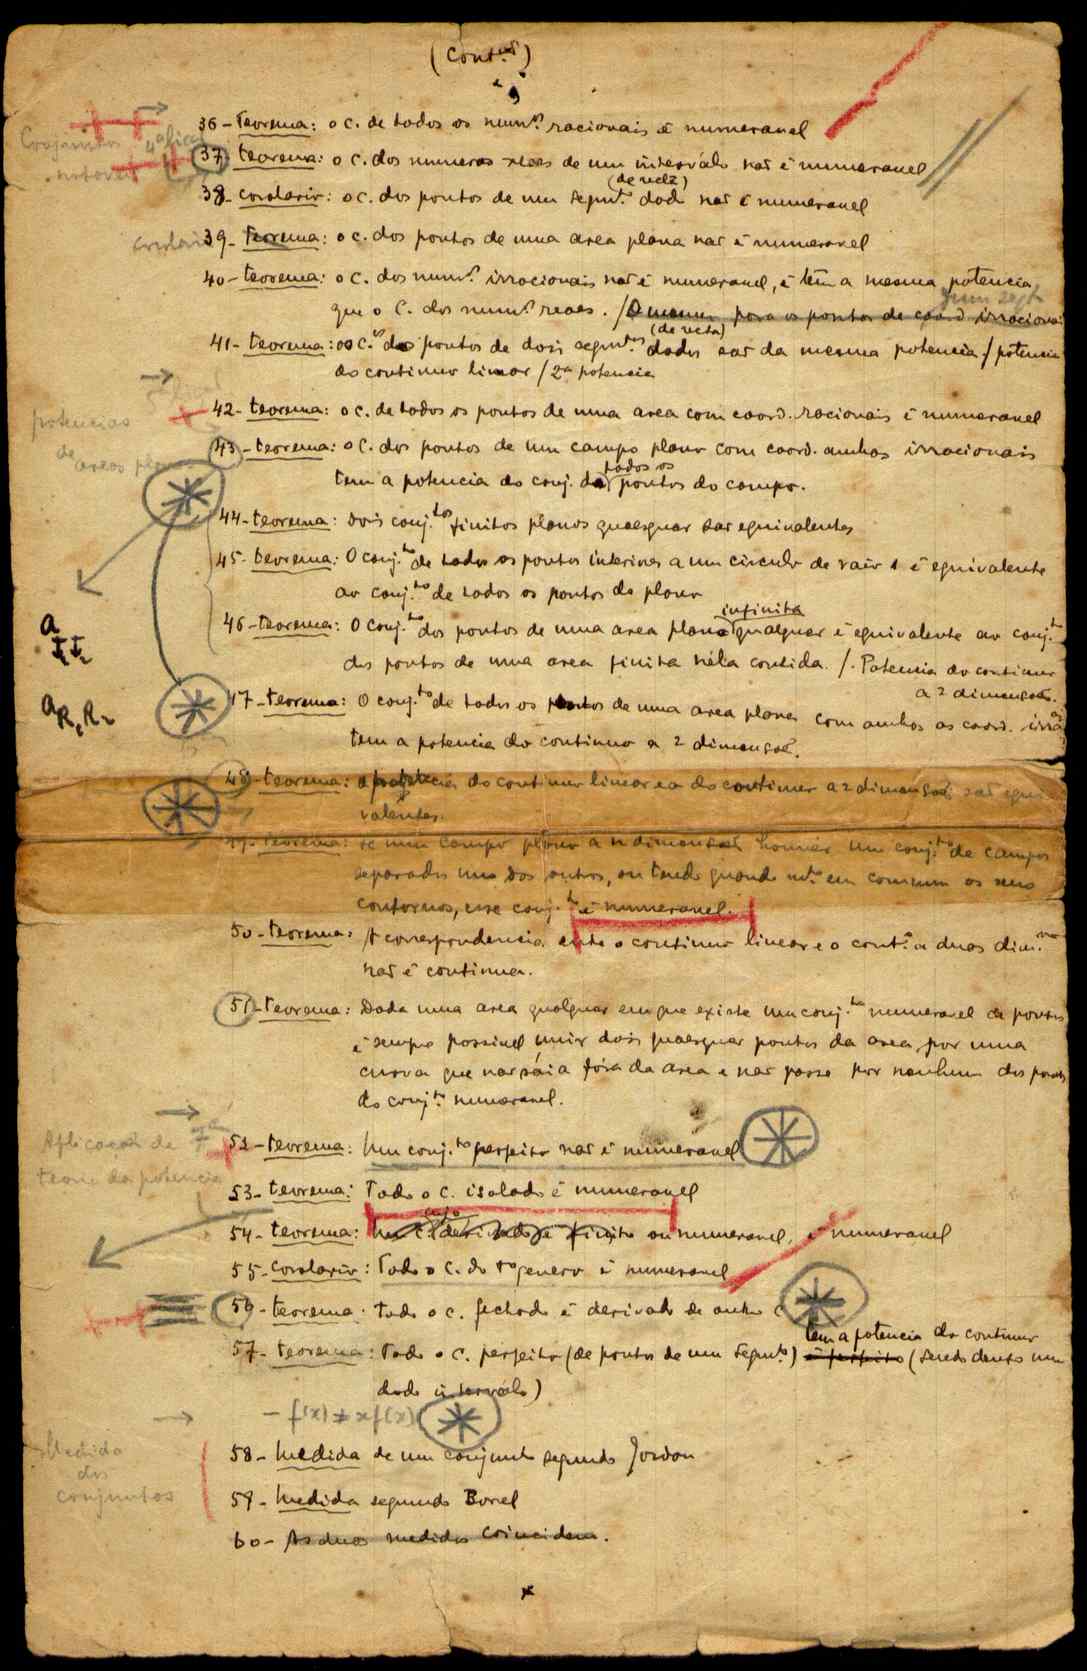 (Cont.ão)
36 - teorema: o c. de todos os num.os racionais é numeravel
Conjuntos
37 - teorema: o c. dos numeros reaes de um intervalo não é numeravel
notaveis
(de recta)
38 - corolario: o c. dos pontos de um segm.to dado não é numeravel
corolario 39 - teorema: o c. dos pontos de uma area plana não é numeravel
40 - teorema: o c. dos num.os irracionais não é numeravel, e tem a mesma potencia
que o c. dos num.os reaes. / O mesmo para os pontos de coord. irracionais
(de recta)
41 - teorema: os c.os dos pontos de dois segm.tos dados são da mesma potencia / potencia
do continuo linear / 2ª potencia
42 - teorema: o c. de todos os pontos de uma area com coord. racionais é numeravel
potencias
de
areas planas
43 - teorema: o c. dos pontos de um campo plano com coord. ambas irracionais
todos os
tem a potencia do conj. de pontos do campo.
44 - teorema: dois conj.tos finitos planos quaesquer são equivalentes
45 - teorema: O conj.to de todos os pontos interiores a um circulo de raio 1 é equivalente
ao conj.to de todos os pontos do plano
infinita
46 - teorema: O conj.to dos pontos de uma area plana qualquer é equivalente ao conj.to
dos pontos de uma area finita nela contida. /. Potencia do continuo
a 2 dimensões.
47 - teorema: O conj.to de todos os pontos de uma area plana com ambas as coord. irra
tem a potencia do continuo a 2 dimensões.
48 - teorema: a potencia do continuo linear e a do continuo a 2 dimensões são equi
valentes.
49 - teorema: se num campo plano a n dimensões houver um conj.to de campos
separados uns dos outros, ou tendo quando m.to em commum os seus
contornos, esse conj.to é numeravel.
50 - teorema: A correspondencia entre o continuo linear e o cont.o a duas dim.
não é continua.
51 - teorema: Dada uma area qualquer em que existe um conj.to numeravel de pontos
é sempre possivel unir dois quaesquer pontos da area por uma
curva que não sáia fóra da area e não passe por nenhum dos pontos
do conj.to numeravel.
Aplicação da
teoria da potencia
52 - teorema: Um conj.to perfeito não é numeravel
53 - teorema: Todo o c. isolado é numeravel
cujo
54 - teorema: Um c. derivado é finito ou numeravel, é numeravel
55 - corolario: Todo o c. do 1º genero é numeravel
56 - teorema: Todo o c. fechado é derivado de outro c
tem a potencia do continuo
57 - teorema: Todo o c. perfeito (de pontos de um segm.to) é perfeito (sendo denso num
dado intervalo)
Medida
dos
conjuntos
58 - Medida de um conjunto segundo Jordan
59 - Medida segundo Borel
60 - As duas medidas coincidem.